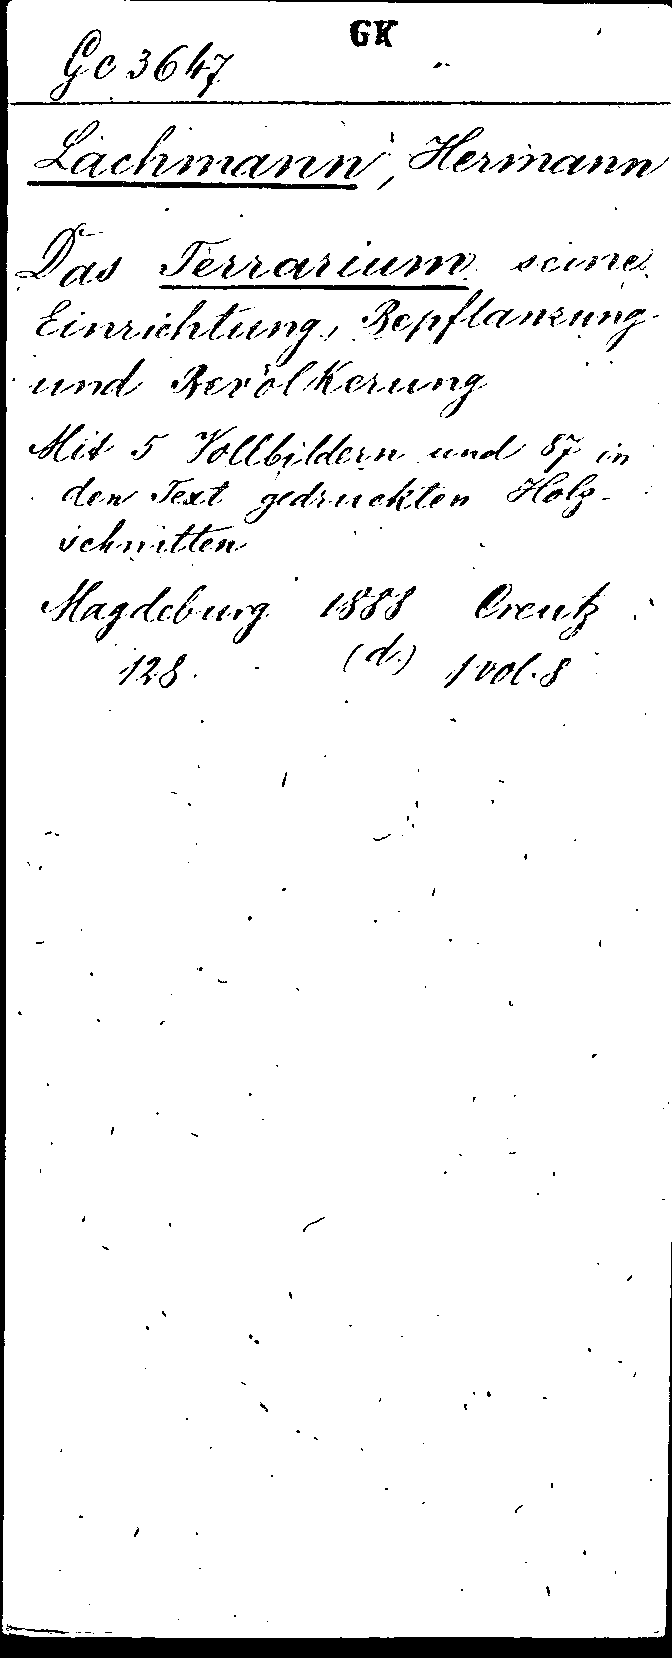 GK
Gc 3647
Lachmann, Hermann
Das Terrarium seine
Einrichtung, Bepflanzung
und Bevölkerung
Mit 5 Vollbildern und 87 in
den Text gedruckten Holz-
schnitten
Magdeburg 1888 Creutz
128 (d.) 1 vol. 8